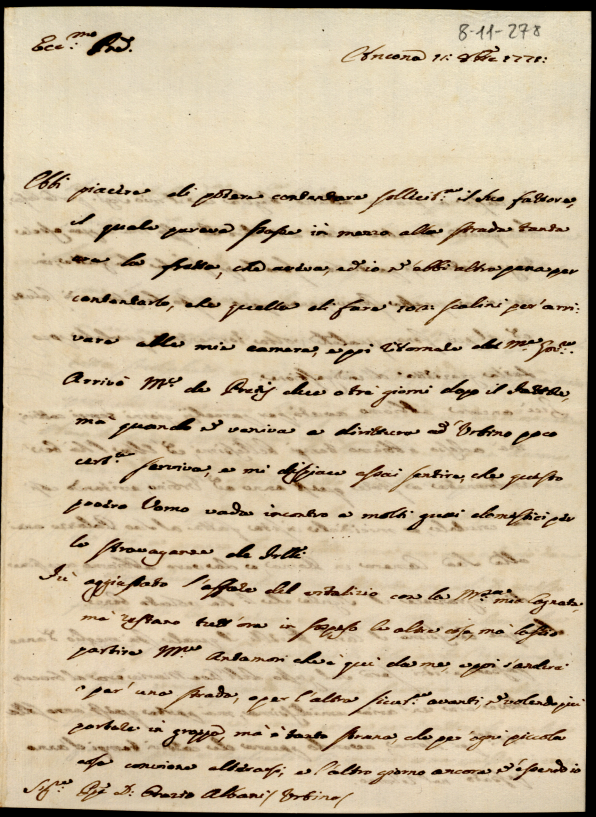 8-11-278
Ecc.mo Pred.
Ancona 1771:
Ebbi piacere di potere contentare sollecit.te il suo fattore,
il quale pareva stasse in mezzo alla strada tanta
era la fretta, che aveva, ed io n' ebbi altra pena per
contentarlo, che quella di fare scalini per arri:
vare alle mie camere, e poi ritornate
Arrivò de due o tre giorni dopo il fattore,
ma quando veniva a dirittura ad Urbino poco
cert.te serviva, e mi dispiace assai sentire, che questo
povero Uomo vada incontro a molti guai domestici per
le stravaganze de
Fù aggiustato l'affare del vitalizio con la mia Cognata,
ma restano tutt'ora in sospeso le altre cose, ma lascio
partire Antamori che è qui da me, e poi s'andrà
o per una strada, o per l'altra avanti, volendo più
portare in groppa, ma è tanto strana, che per ogni piccola
cosa conviene alterarsi, e l'altro giorno ancora essendo io
D: Orazio Albani Urbino